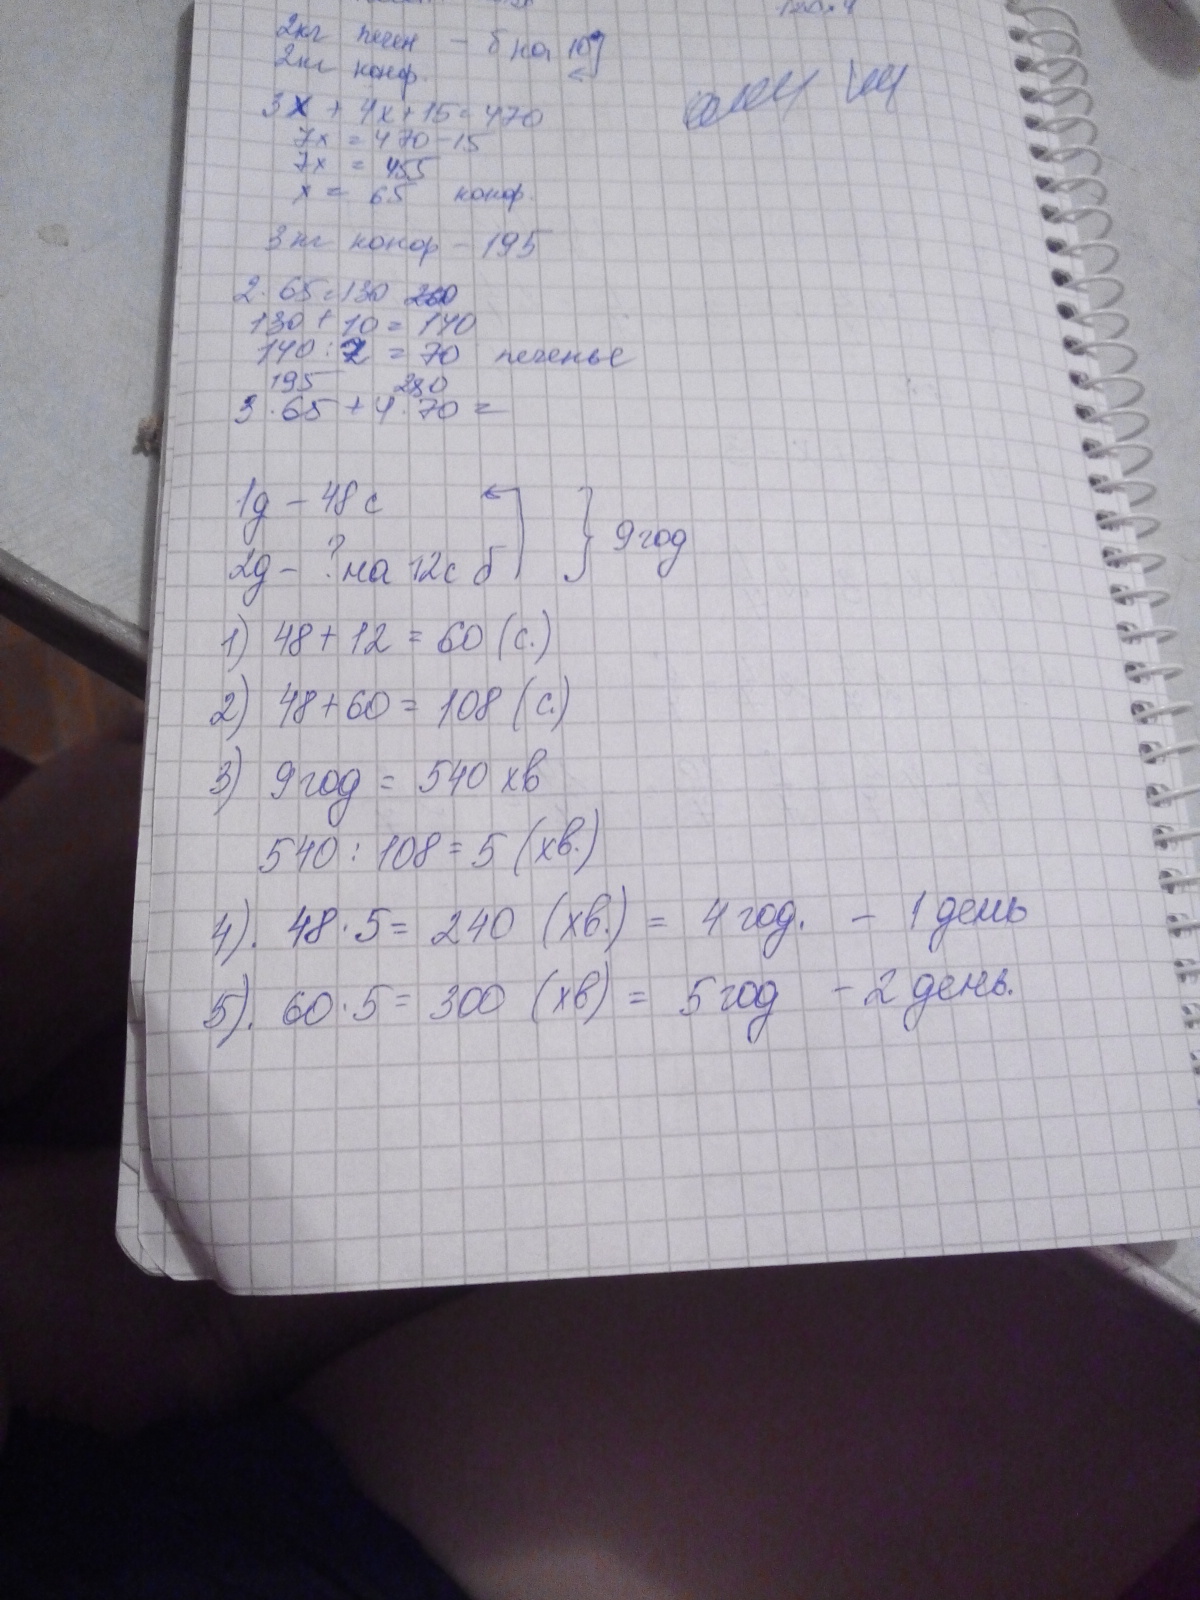 2кг печен – б на 10
2кг конф.
3x + 4x + 15 = 470
7x = 470 – 15
7x = 455
x = 65 конф.
3кг конф – 195
2 · 65 = 130 260
130 + 10 = 140
140 : 2 = 70 печенье
195 280
3 · 65 + 4 · 70 =
1д – 48 с
2д – ? на 12с б
} 9 год
1) 48 + 12 = 60 (с.)
2) 48 + 60 = 108 (с.)
3) 9 год = 540 хв
540 : 108 = 5 (хв.)
4). 48 · 5 = 240 (хв.) = 4 год. – 1 день
5). 60 · 5 = 300 (хв) = 5 год – 2 день.